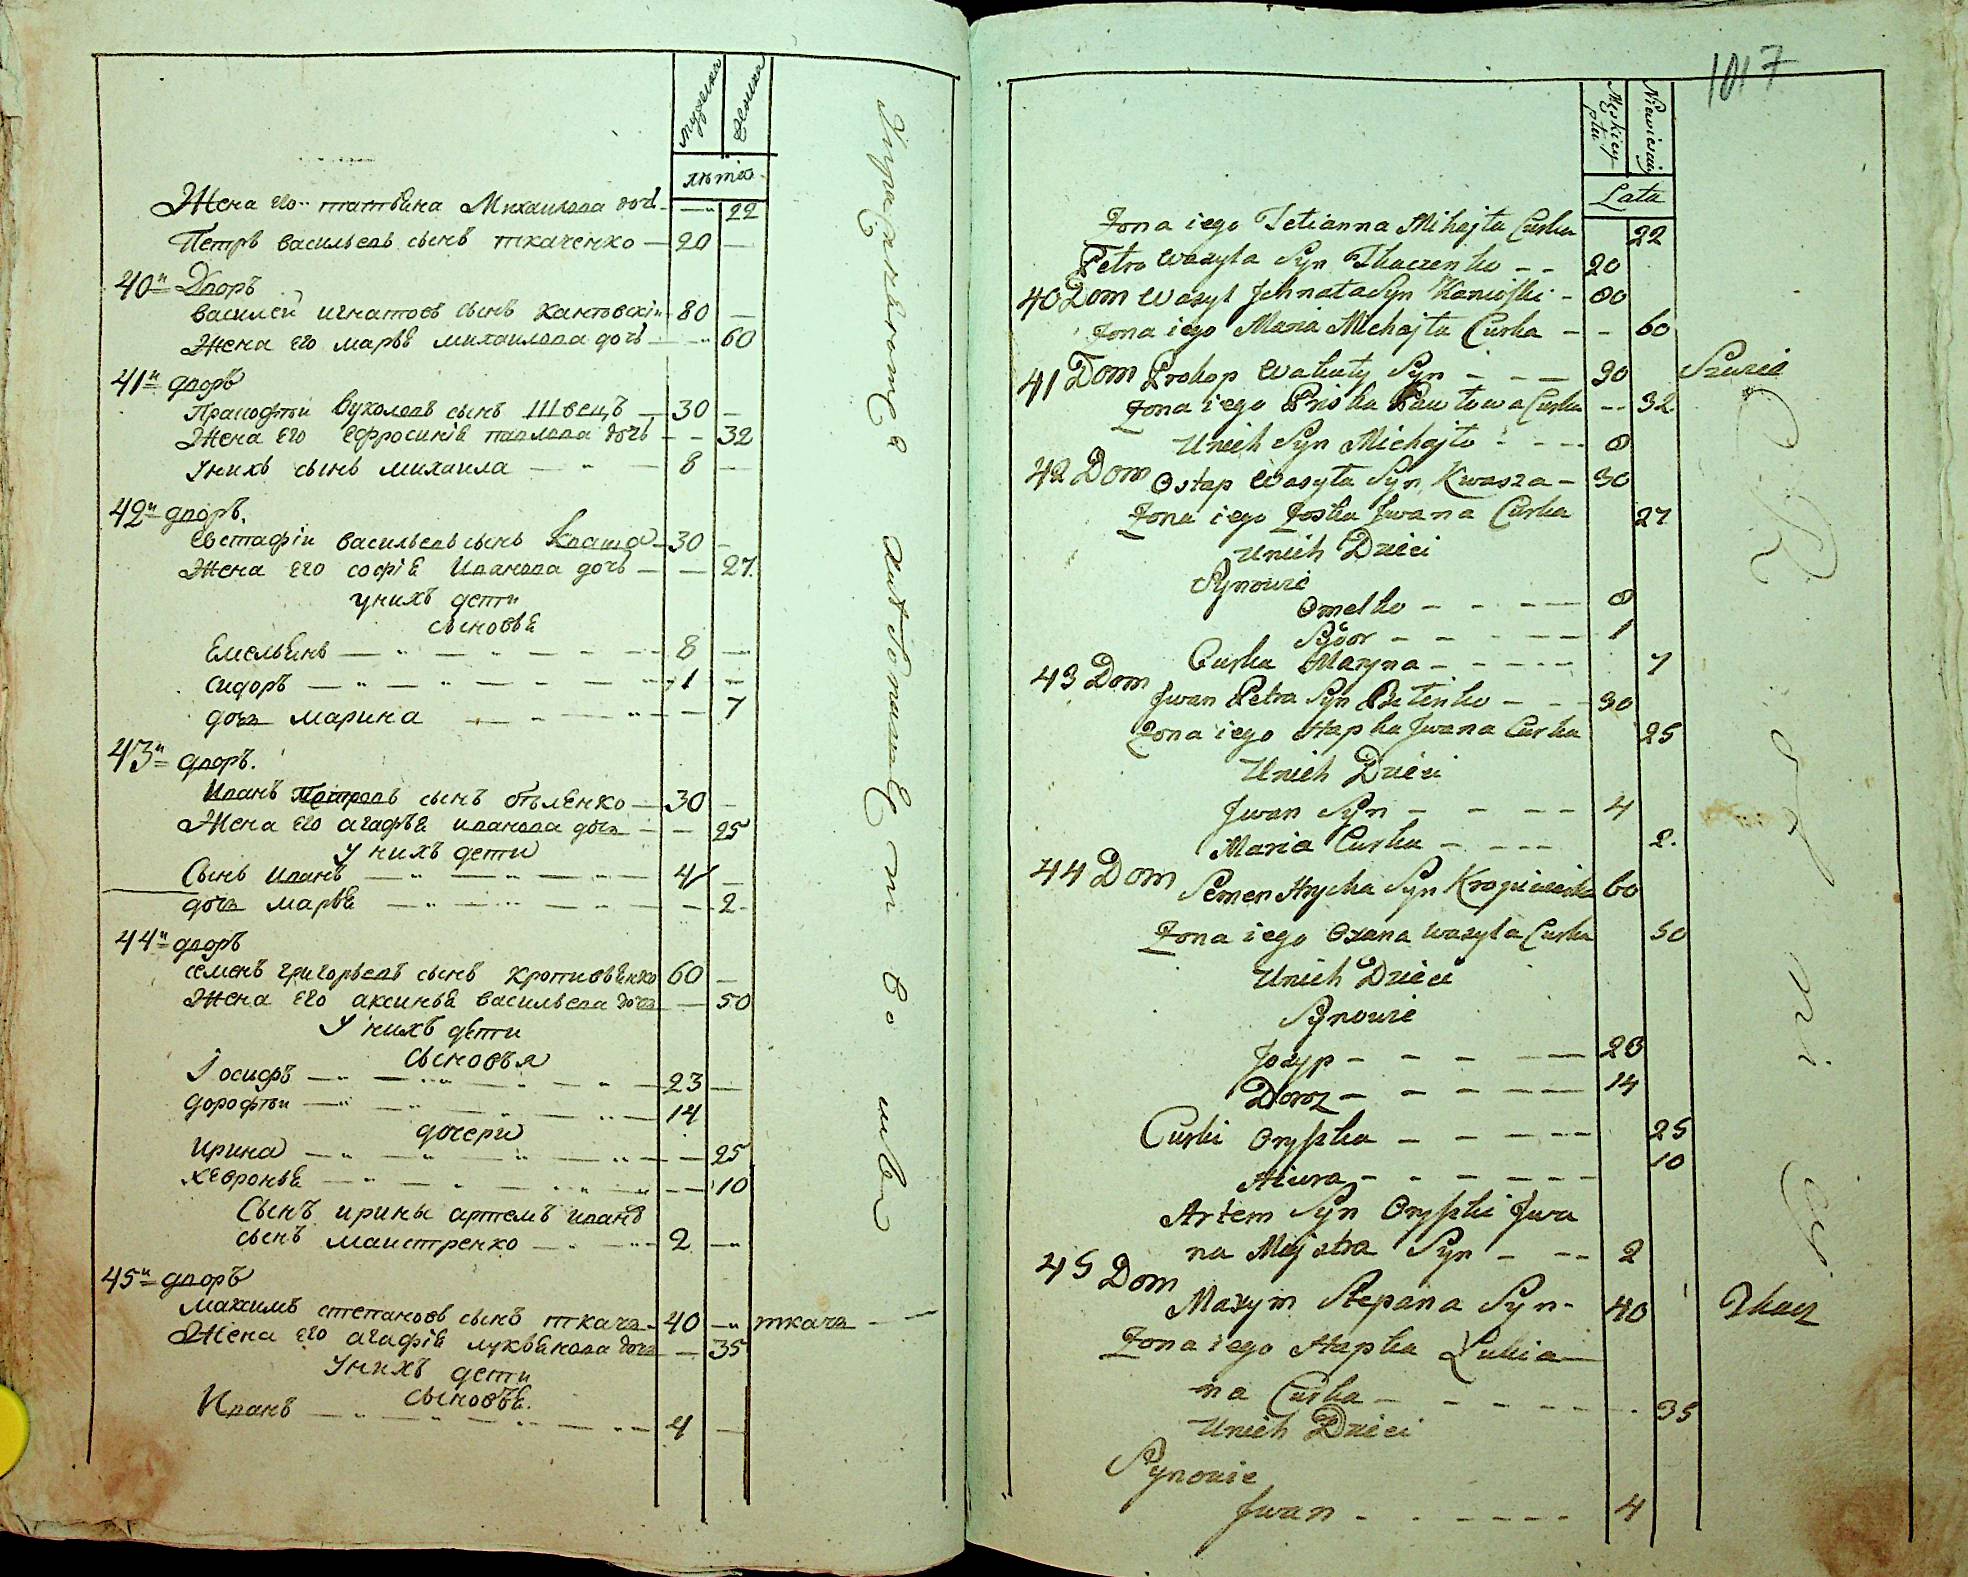 мужеска
женска
лѣта
Жена его татьѣна Михаилова дочь — 22
Петръ васильевъ сынъ ткаченко — 20 —
40й Дворъ
василей игнатовъ сынъ кантовскій 80 —
Жена его марьѣ михаилова дочь — 60
41й дворъ
Пракофѣи Вуколовъ сынъ Швецъ — 30 —
Жена его ефросиніѣ павлова дочь — — 32
Унихъ сынъ михаила — 8 —
42й дворъ.
Евстафіи васильевъ сынъ Кваша — 30 —
Жена его софіѣ Иванова дочь — — 27
унихъ дети
сыновьѣ
Емельѣнъ — 8 —
сидоръ — 1 —
дочь марина — 7
43й дворъ.
Иванъ Петровъ сынъ бѣленко — 30 —
Жена его агафьѣ иванова дочь — — 25
У нихъ дети
Сынъ иванъ — 4 —
дочь марьѣ — 2
44й дворъ
семенъ григорьевъ сынъ кропивьѣнко 60 —
Жена его аксиньѣ васильева дочь — 50
У нихъ дети
сыновья
Іосифъ — 23 —
дорофѣи — 14
дочери
ирина — 25
хевроньѣ — 10
Сынъ ирины артемъ иванъ
сынъ маистренко — 2 —
45й дворъ
Максимъ степановъ сынъ ткачь 40 — ткачь —
Жена его агафіѣ лукьѣнова дочь — 35
Унихъ дети
сыновьѣ.
Иванъ — 4 —
1017
Męskiey płci
Niewiesciey
Lata
Żona iego Tetianna Mihajła Curka 22
Petro Wasyla Syn Tkaczenko — 20
40 Dom Wasyl Jehnata Syn Kaniofski — 80
Żona iego Maria Michajła Curka — — 60
41 Dom Prokop Wakuły Syn — — — 30 Szwiec
Żona iego Priska Pawłowa Curka — 32
Unich Syn Michajło — — 8
42 Dom Ostap Wasyla Syn Kwasza — 30
Żona iego Zoska Jwana Curka 27
Unich Dzieci
Synowie
Omelko — — — 8
Sydor — — — 1
Curka Maryna — — — 7
43 Dom
Jwan Petra Syn Bilenko — — 30
Żona iego Hapka Jwana Curka 25
Unich Dzieci
Jwan Syn — — — 4
Maria Curka — — — 2.
44 Dom Semen Hrycka Syn Kropiwienko 60
Żona iego Oxana Wasyla Curka 50
Unich Dzieci
Synowie
Jozyp — — — 23
Dorosz — — — 14
Curki Oryszka — — — 25
Hiwra — — — 10
Artem Syn Oryszki Jwa
na Majstra Syn — — 2
45 Dom
Maxym Stepana Syn — 40 Tkacz
Żona iego Hapka Łukia—
na Curka — — — 35
Unich Dzieci
Synowie
Jwan — — — 4